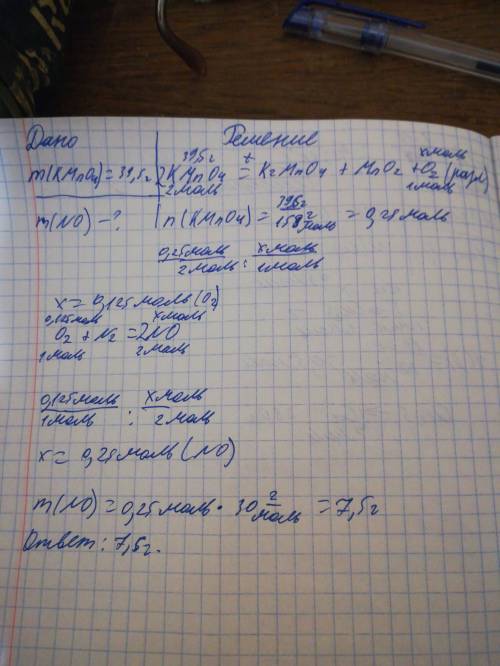 Дано Решение
39,5г х моль
m(KMnO4)=39,5г 2KMnO4 t= K2MnO4 + MnO2 + O2 (разл)
2моль 1моль
m(NO) -? n(KMnO4) = 39,5г / 158 г/моль = 0,25 моль
0,25моль / 2моль : х моль / 1моль
x = 0,125 моль (O2)
0,125моль х моль
O2 + N2 = 2NO
1моль 2моль
0,125моль / 1моль : х моль / 2моль
x = 0,25 моль (NO)
m(NO) = 0,25 моль · 30 г/моль = 7,5г
Ответ: 7,5г.